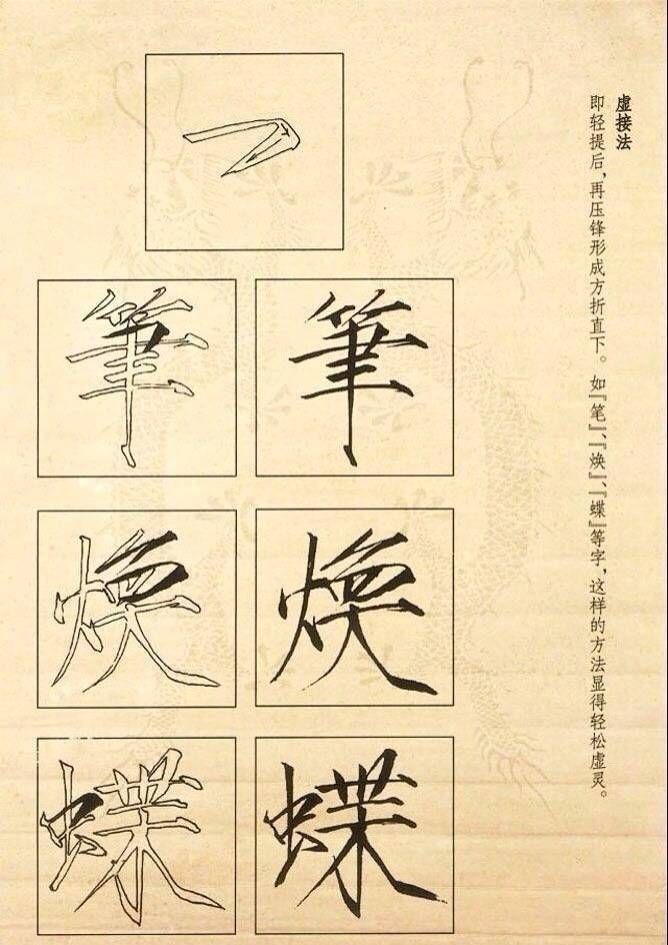 虚接法
即轻提后,再压锋形成方折直下。如『笔』、『焕』、『蝶』等字,这样的方法显得轻松虚灵。
筆 筆
焕 焕
蝶 蝶